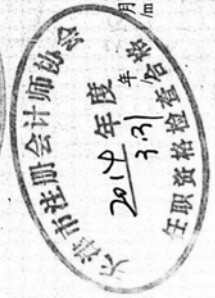 天津市注册会计师协会
2014年度
年
3.31
任职资格检查合格
月
/m